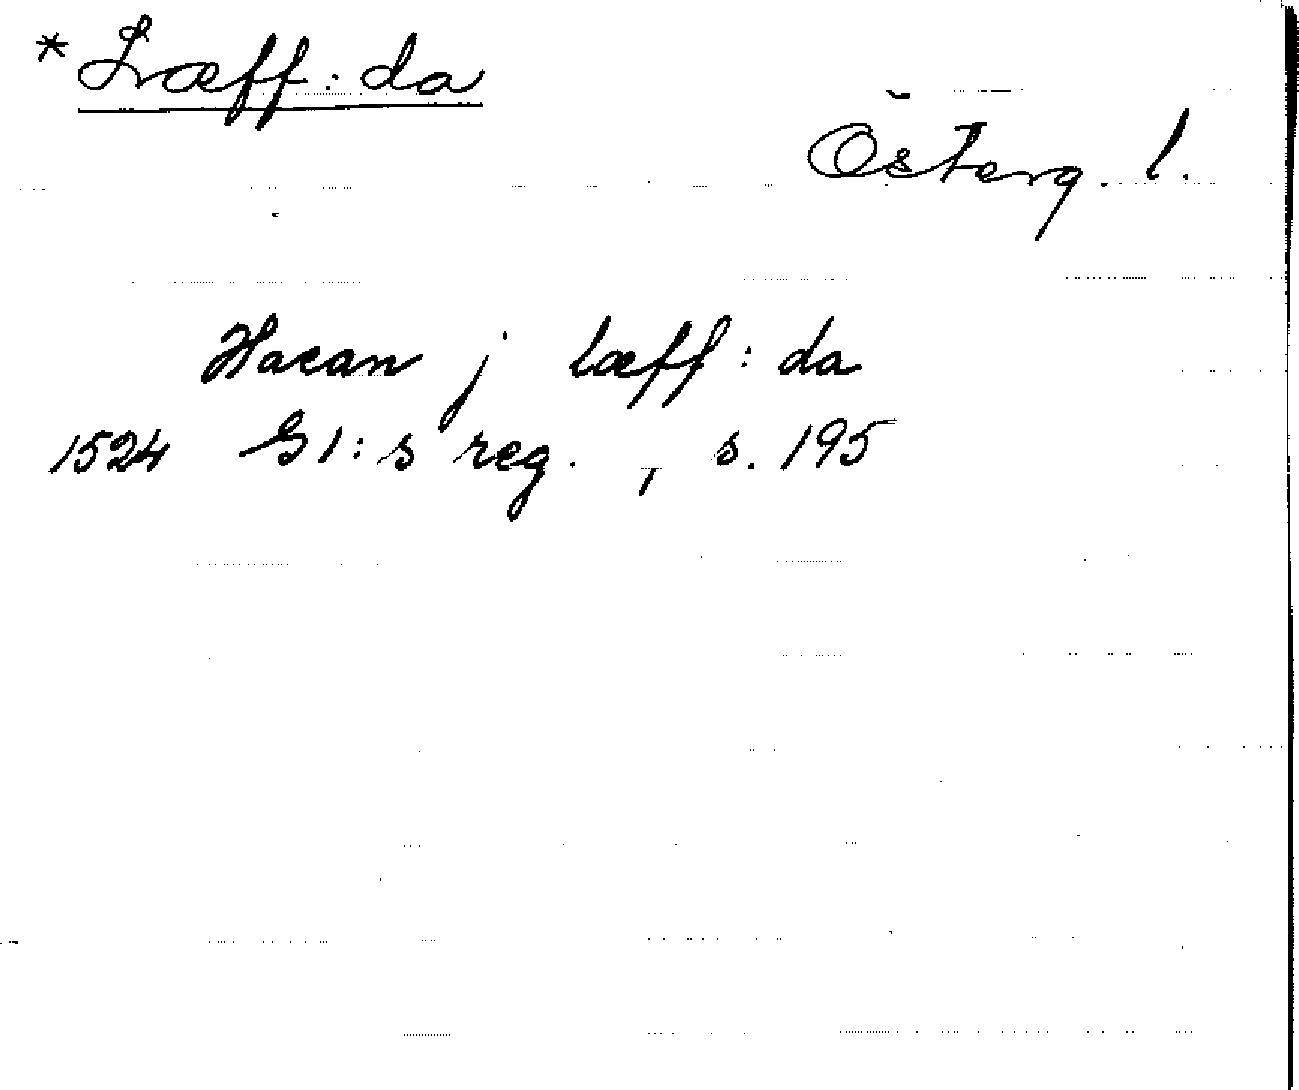 *Læff:da
Österg. l.
Hacan j læff:da
1524 G I:s reg. I, s. 195